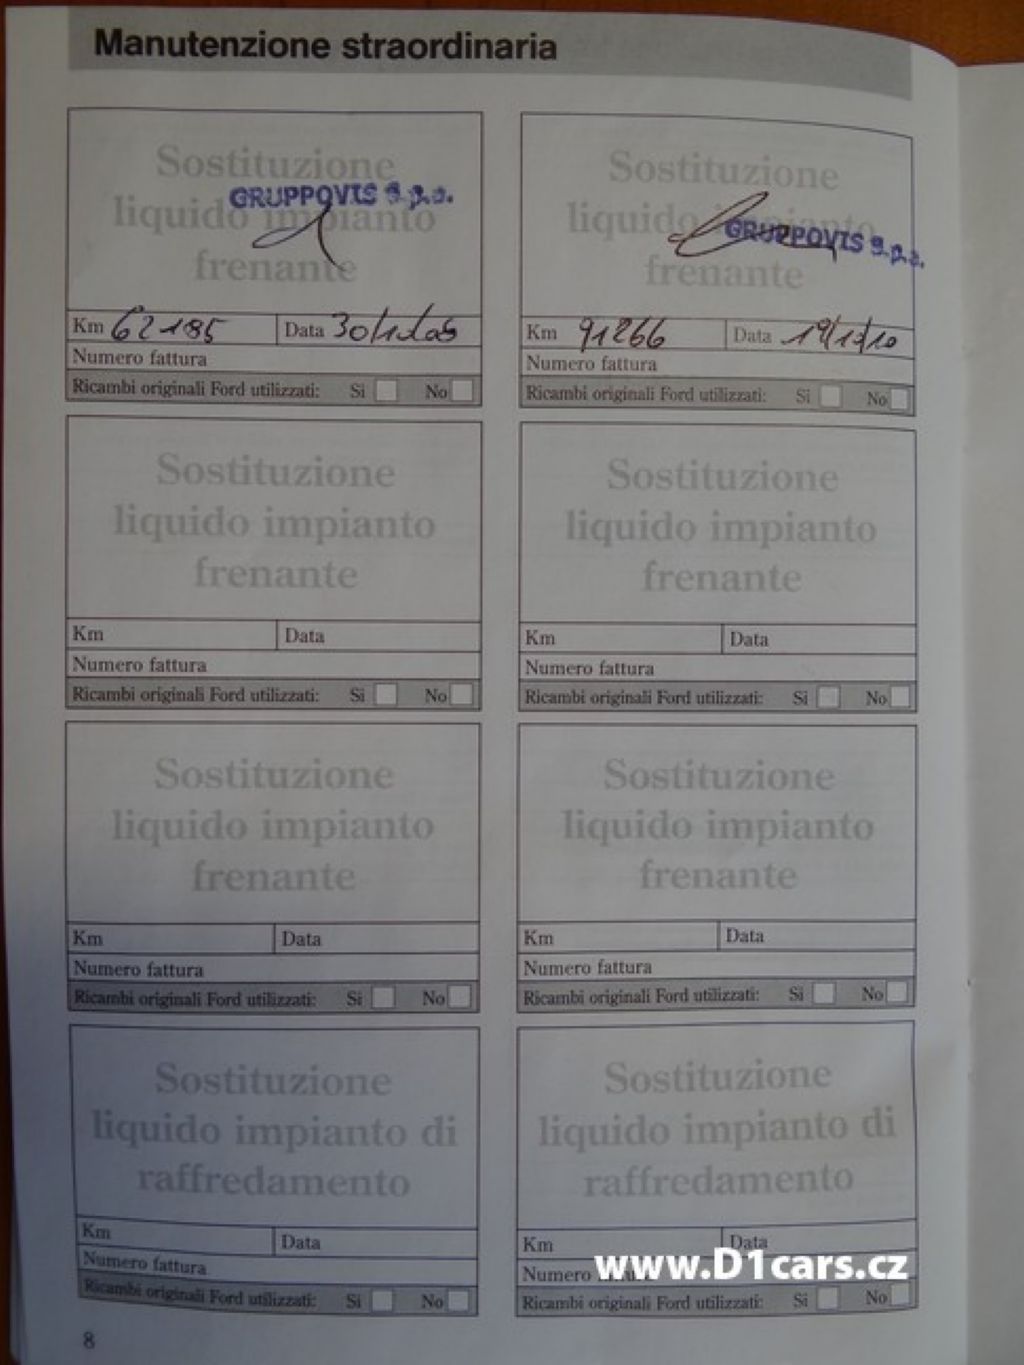 Manutenzione straordinaria
Sostituzione
liquido impianto
frenante
GRUPPOVIS S.p.a.
Km 62185 Data
Numero fattura
Ricambi originali Ford utilizzati: Si No
Sostituzione
liquido impianto
frenante
GRUPPOVIS S.p.a.
Km 91266 Data 19/12/10
Numero fattura
Ricambi originali Ford utilizzati: Si No
Sostituzione
liquido impianto
frenante
Km Data
Numero fattura
Ricambi originali Ford utilizzati: Si No
Sostituzione
liquido impianto
frenante
Km Data
Numero fattura
Ricambi originali Ford utilizzati: Si No
Sostituzione
liquido impianto
frenante
Km Data
Numero fattura
Ricambi originali Ford utilizzati: Si No
Sostituzione
liquido impianto
frenante
Km Data
Numero fattura
Ricambi originali Ford utilizzati: Si No
Sostituzione
liquido impianto di
raffredamento
Km Data
Numero fattura
Ricambi originali Ford utilizzati: Si No
Sostituzione
liquido impianto di
raffredamento
Km Data
Numero fattura
www.D1cars.cz
Ricambi originali Ford utilizzati: Si No
8